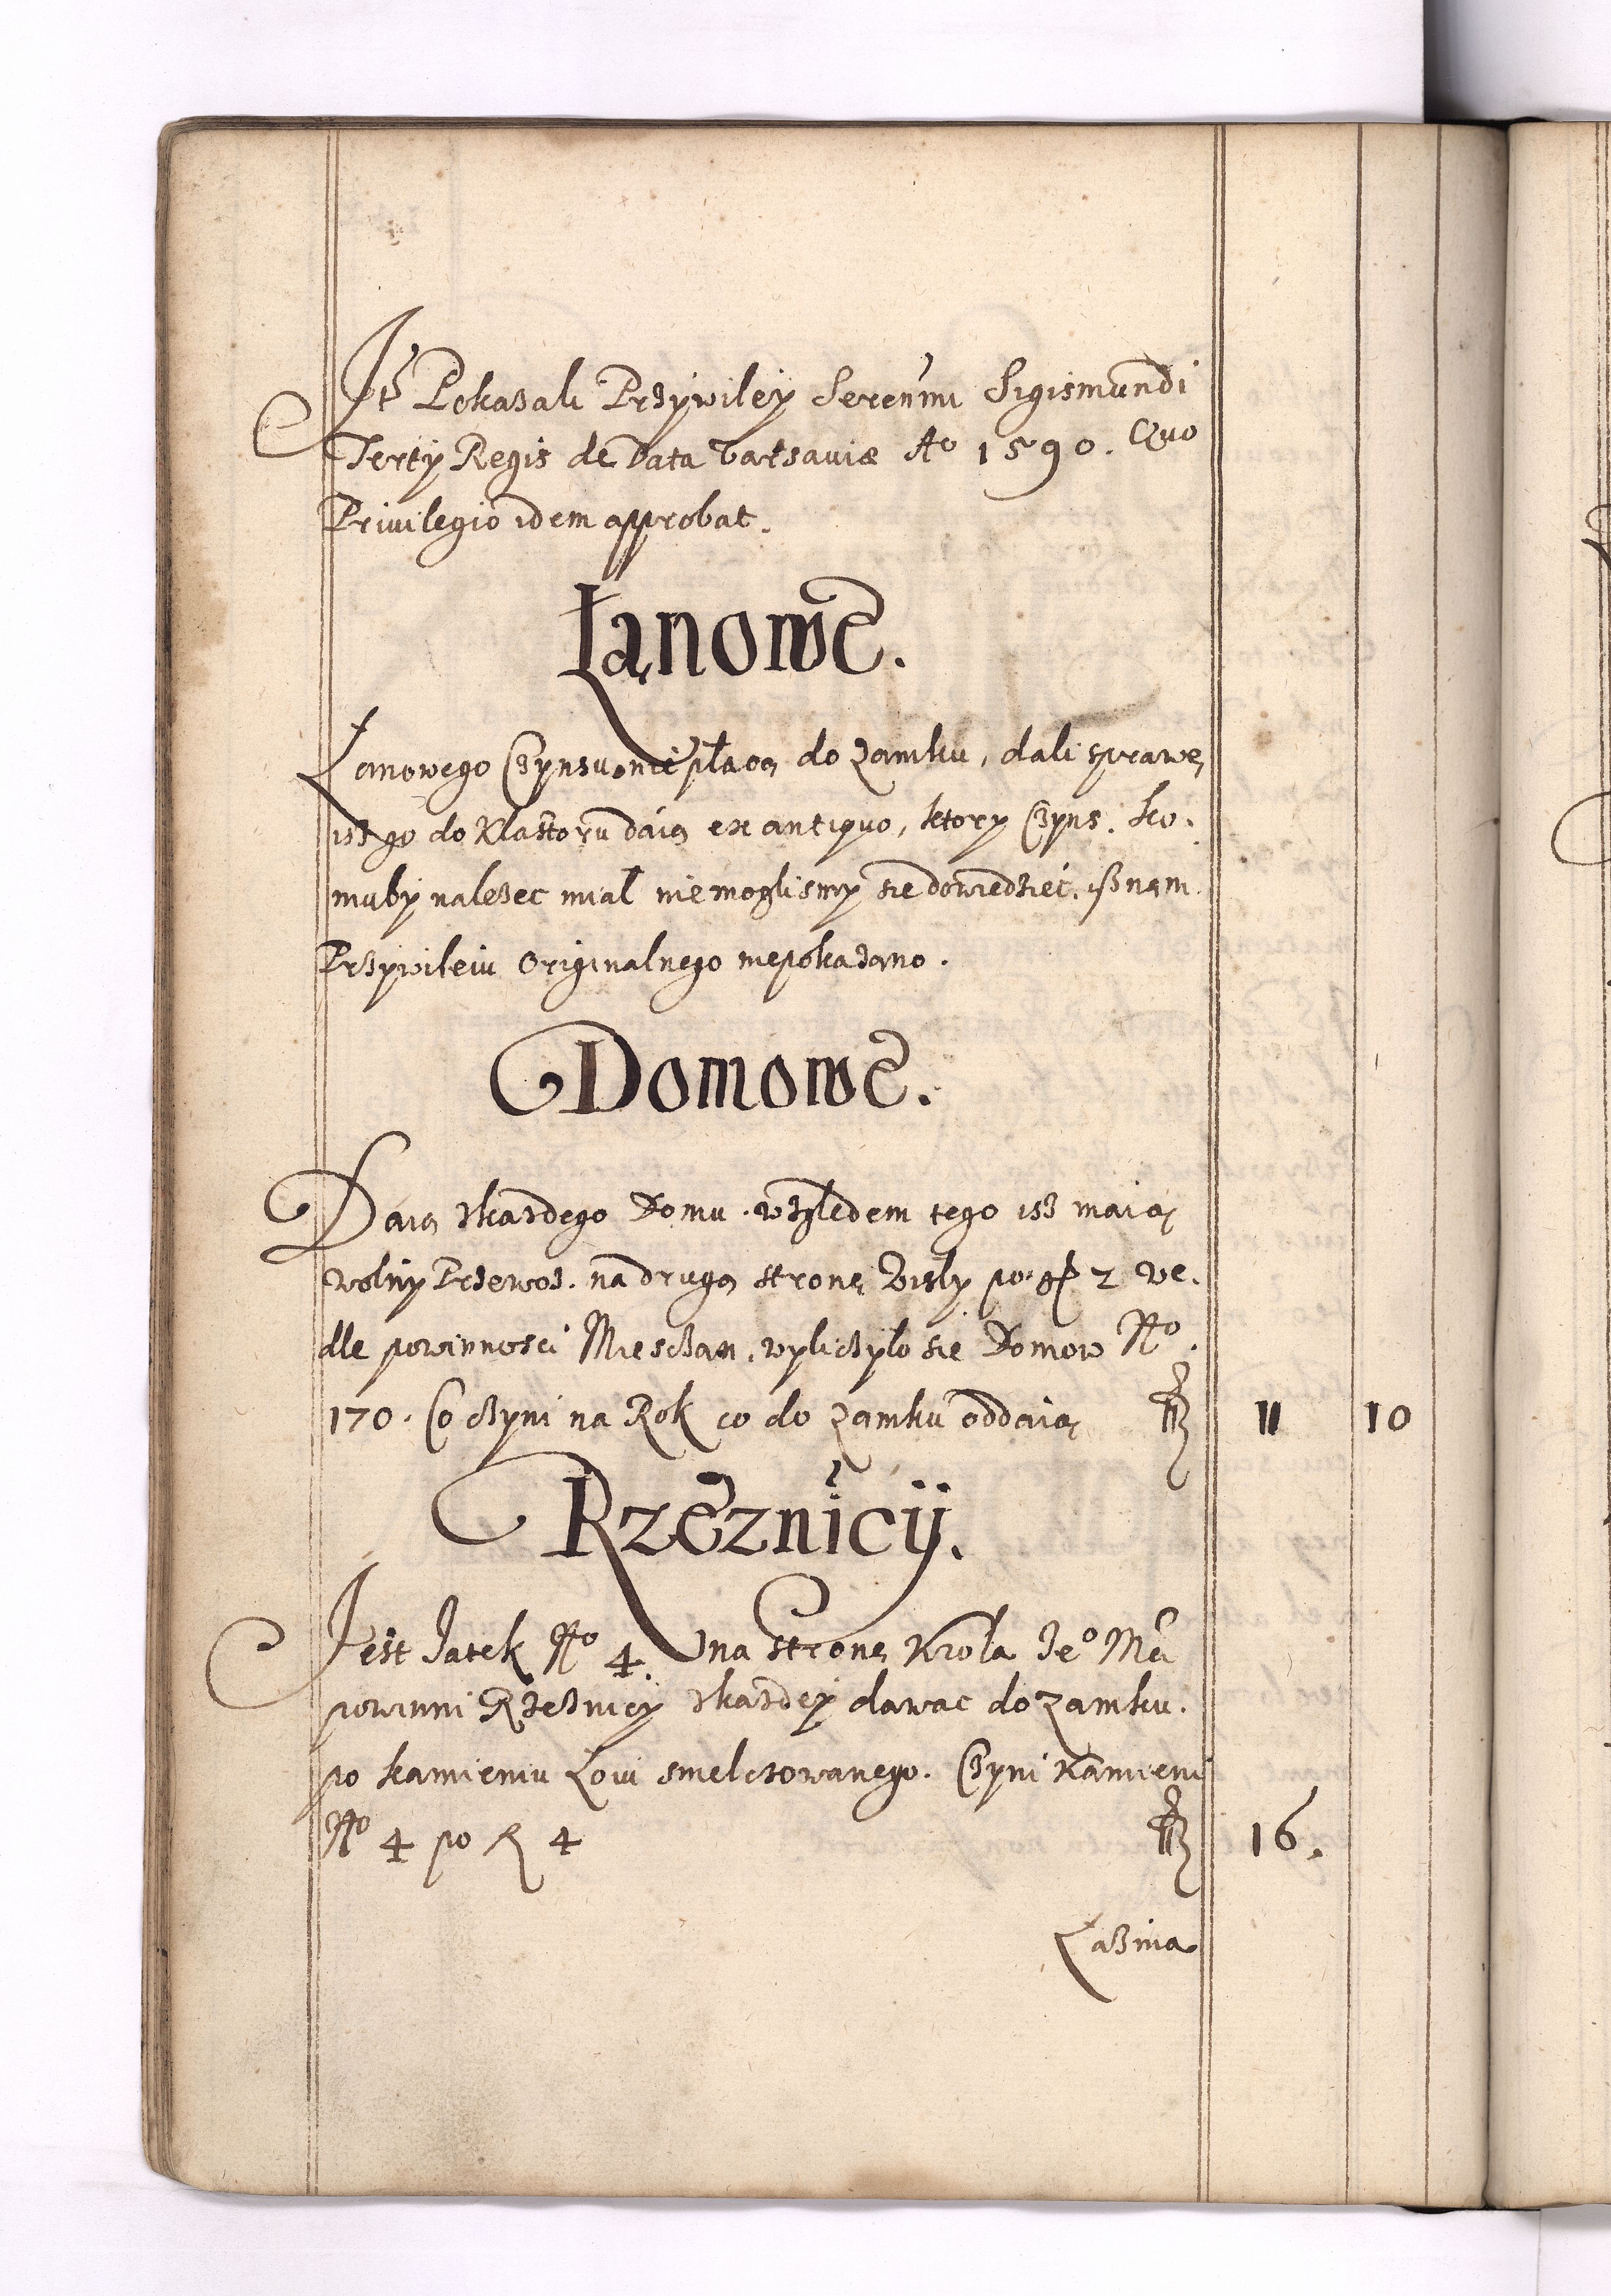 Itẽ Pokazali Przywiley Serenmi Sigismundi
Tertÿ Regis de Data Varsauiæ Aº 1590. Quo
Priuilegio idem approbat.
Łanowe.
Łanowego Czynszu nie płacą do Zamku, dali sprawę,
isz go do Klasztoru daią ex antiquo, ktory Czyns. ko.
muby nalezec miał nie moglismy sie dowiedziec. isz nam.
Przywileiu Originalnego nie pokazano.
Domowe.
Daią zkazdego Domu. wzgledem tego isz maią
wolny Przewoz. na drugą stronę Wisły po gr 2 we.
dle powinnosci Mieszczan. wyliczyło sie Domow Nº.
170. Co czyni na Rok co do Zamku oddaią fl 11 10
Rzeznicy.
Jest Jatek Nº 4. na stronę Krola Jeº Mci
powinni Rzeznicy zkazdey dawac do Zamku.
po kamieniu Łoiu smelczowanego. Czyni Kamieni
Nº 4 po fl 4 fl 16.
Łaznia